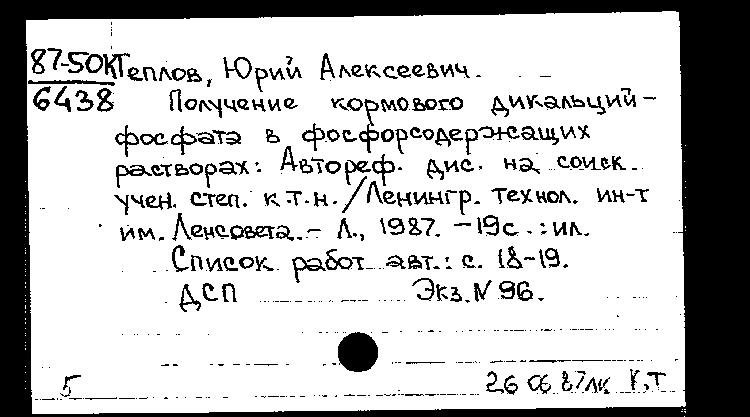 87-50К Теплов, Юрий Алексеевич.
6438 Получение кормового дикальций-
фосфата в фосфорсодержащих
растворах: Автореф. дис. на соиск.
учен. степ. к.т.н. / Ленингр. технол. ин-т
им. Ленсовета. - Л., 1987. - 19с. : ил.
Список работ авт.: с. 18-19.
ДСП Экз. N 96.
5 26 06 87лк К,Т